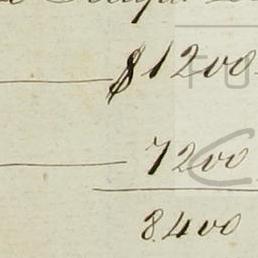 $1200
7200
8400